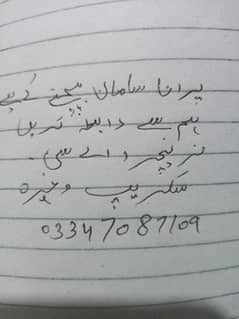 پرانا سامان بیچنے کے لیے
ہم سے رابطہ کریں
فرنیچر اے سی۔
سکریپ وغیرہ
03347087109